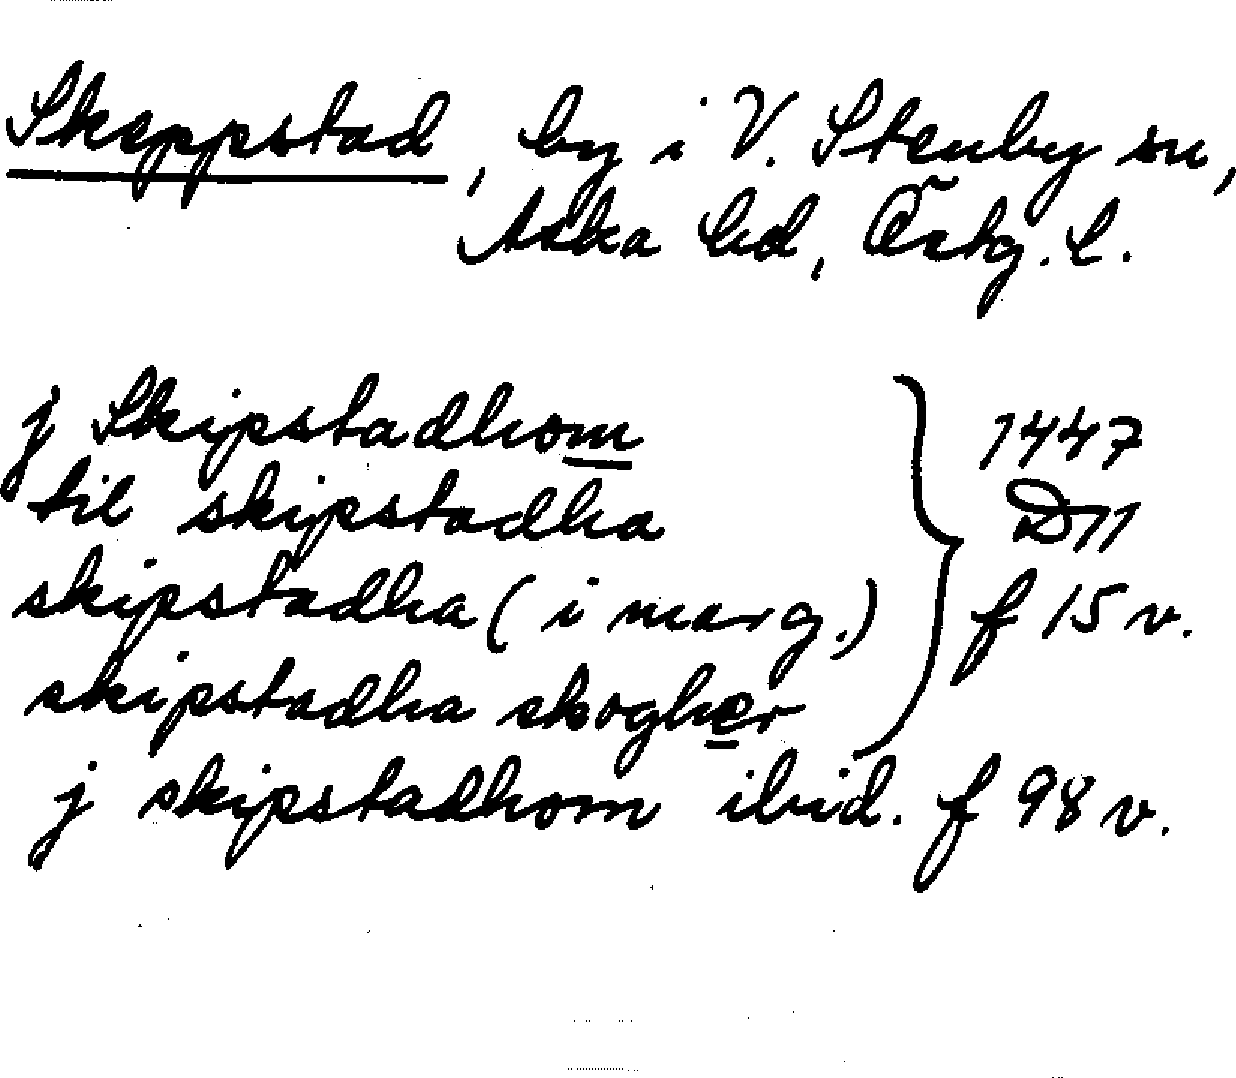 Skeppstad, by i V. Stenby sn,
Aska hd, Östg. L.
j Skipstadhom 1447
til skipstadha D11
skipstadha (i marg.) f 15 v.
skipstadha skogher
j skipstadhom ibid. f 98 v.